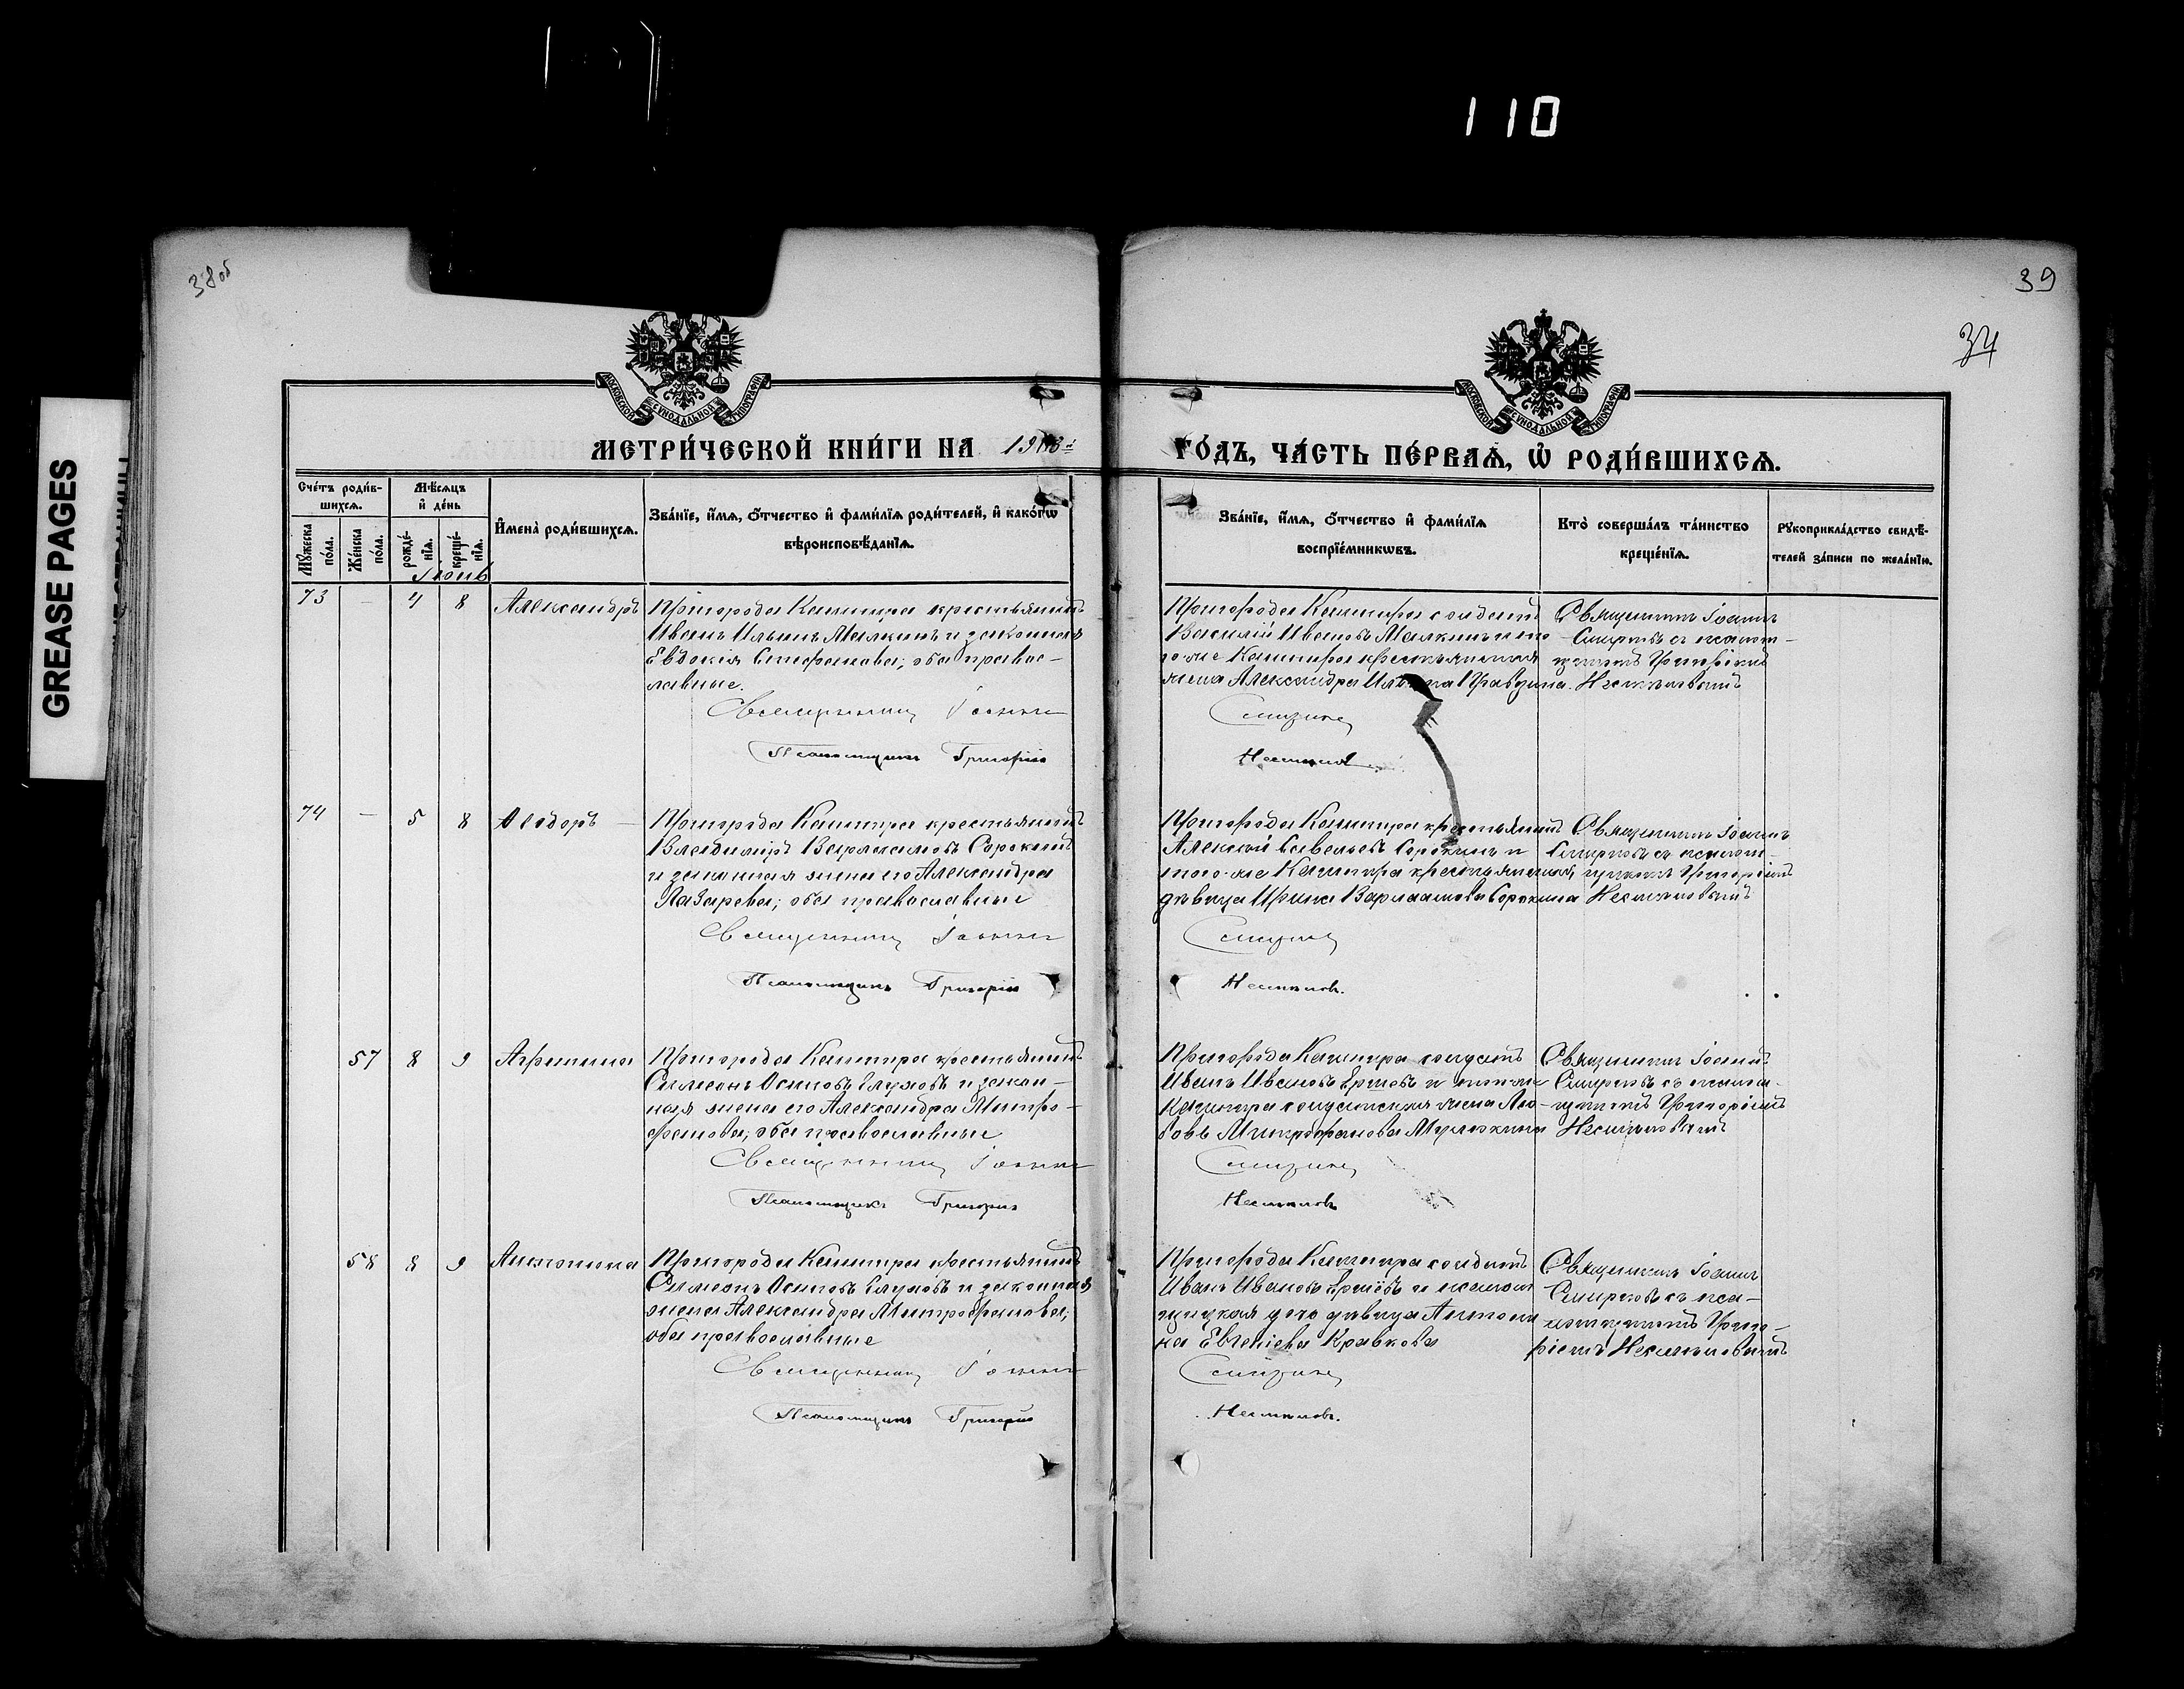 110
GREASE PAGES
38об
39
34
МОСКОВСКОЙ СѴНОДАЛЬНОЙ ТИПОГРАФІИ
МОСКОВСКОЙ СѴНОДАЛЬНОЙ ТИПОГРАФІИ
МЕТРИ́ЧЕСКОЙ КНИ́ГИ НА 1903й
ГО́ДЪ, ЧА́СТЬ ПЕ́РВАѦ, Ѡ҆ РОДИ́ВШИХСѦ.
Сче́тъ роди́в-
шихсѧ.
Мꙋ́жеска по́ла.
Же́нска по́ла.
Мѣ́сѧцъ
и҆ де́нь
рожде́-
нїѧ.
креще́-
нїѧ.
И҆мена̀ роди́вшихсѧ.
Зва́нїе, и҆́мѧ, ѻ҆́тчество и҆ фами́лїѧ роди́телей, и҆ како́гѡ
вѣроисповѣ́данїѧ.
Зва́нїе, и҆́мѧ, ѻ҆́тчество и҆ фами́лїѧ
воспрїе́мникѡвъ.
Кто̀ соверша́лъ та́инство
креще́нїѧ.
Рꙋкоприкла́дство свидѣ́-
телей за́писи по жела́нїю.
Іюнь
73 — 4 8 Александръ
Пригорода Каншира крестьянинъ
Иванъ Ильинъ Малкинъ и законная
Евдокія Стефанова; оба правос-
лавные.
Священникъ Іоаннъ
Псаломщикъ Григорій
Пригорода Каншира солдатъ
Василій Ивановъ Малкинъ и то
го-же Каншира крестьянская
жена Александра Ильина
Смирновъ
Несмѣловъ
Священникъ Іоаннъ
Смирновъ съ псалом-
щикомъ Григоріемъ
Несмѣловымъ
74 — 5 8 Ѳеодоръ —
Пригорода Каншира крестьянинъ
Владиміръ Варлаамовъ Сорокинъ
и законная жена его Александра
Лазарева; оба православные
Священникъ Іоаннъ
Псаломщикъ Григорій
Пригорода Каншира крестьянинъ
Алексѣй Савельевъ Сорокинъ и
того-же Каншира крестьянская
дѣвица Ирина Варлаамова Сорокина
Смирновъ
Несмѣловъ.
Священникъ Іоаннъ
Смирновъ съ псалом-
щикомъ Григоріемъ
Несмѣловымъ
57 8 9 Агрипина
Пригорода Каншира крестьянинъ
Симеонъ Осиповъ Глуховъ и закон-
ная жена его Александра Митро-
фанова; оба православные
Священникъ Іоаннъ
Псаломщикъ Григорій
Пригорода Каншира солдатъ
Иванъ Ивановъ Ершовъ и
Каншира солдатская жена Лю-
бовь Митрофанова
Смирновъ
Несмѣловъ
Священникъ Іоаннъ
Смирновъ съ псалом-
щикомъ Григоріемъ
Несмѣловымъ
58 8 9 Антонина
Пригорода Каншира крестьянинъ
Симеонъ Осиповъ Глуховъ и законная
жена Александра Митрофанова;
оба православные
Священникъ Іоаннъ
Псаломщикъ Григорій
Пригорода Каншира солдатъ
Иванъ Ивановъ Ершовъ и псалом
щицкая дочь дѣвица Антони
на Евгеніева Кравкова
Смирновъ
Несмѣловъ.
Священникъ Іоаннъ
Смирновъ съ пса-
ломщикомъ Григо-
ріемъ Несмѣловымъ